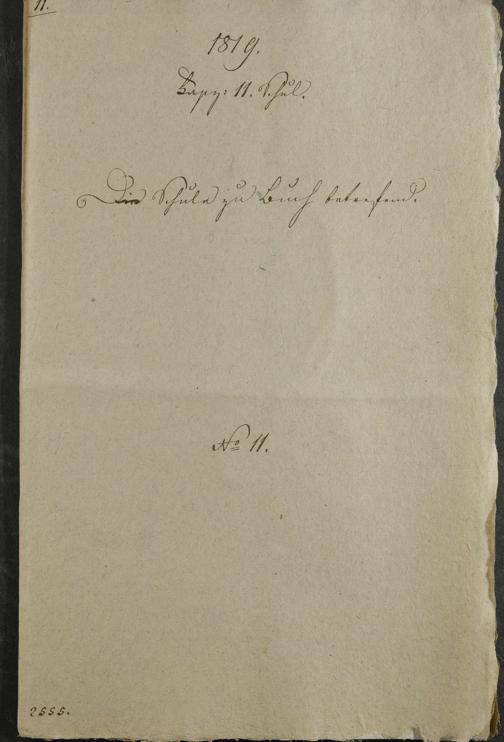 11.
1819.
11. Schul.
Die Schule zu Buch betrefend.
No 11.
2555.